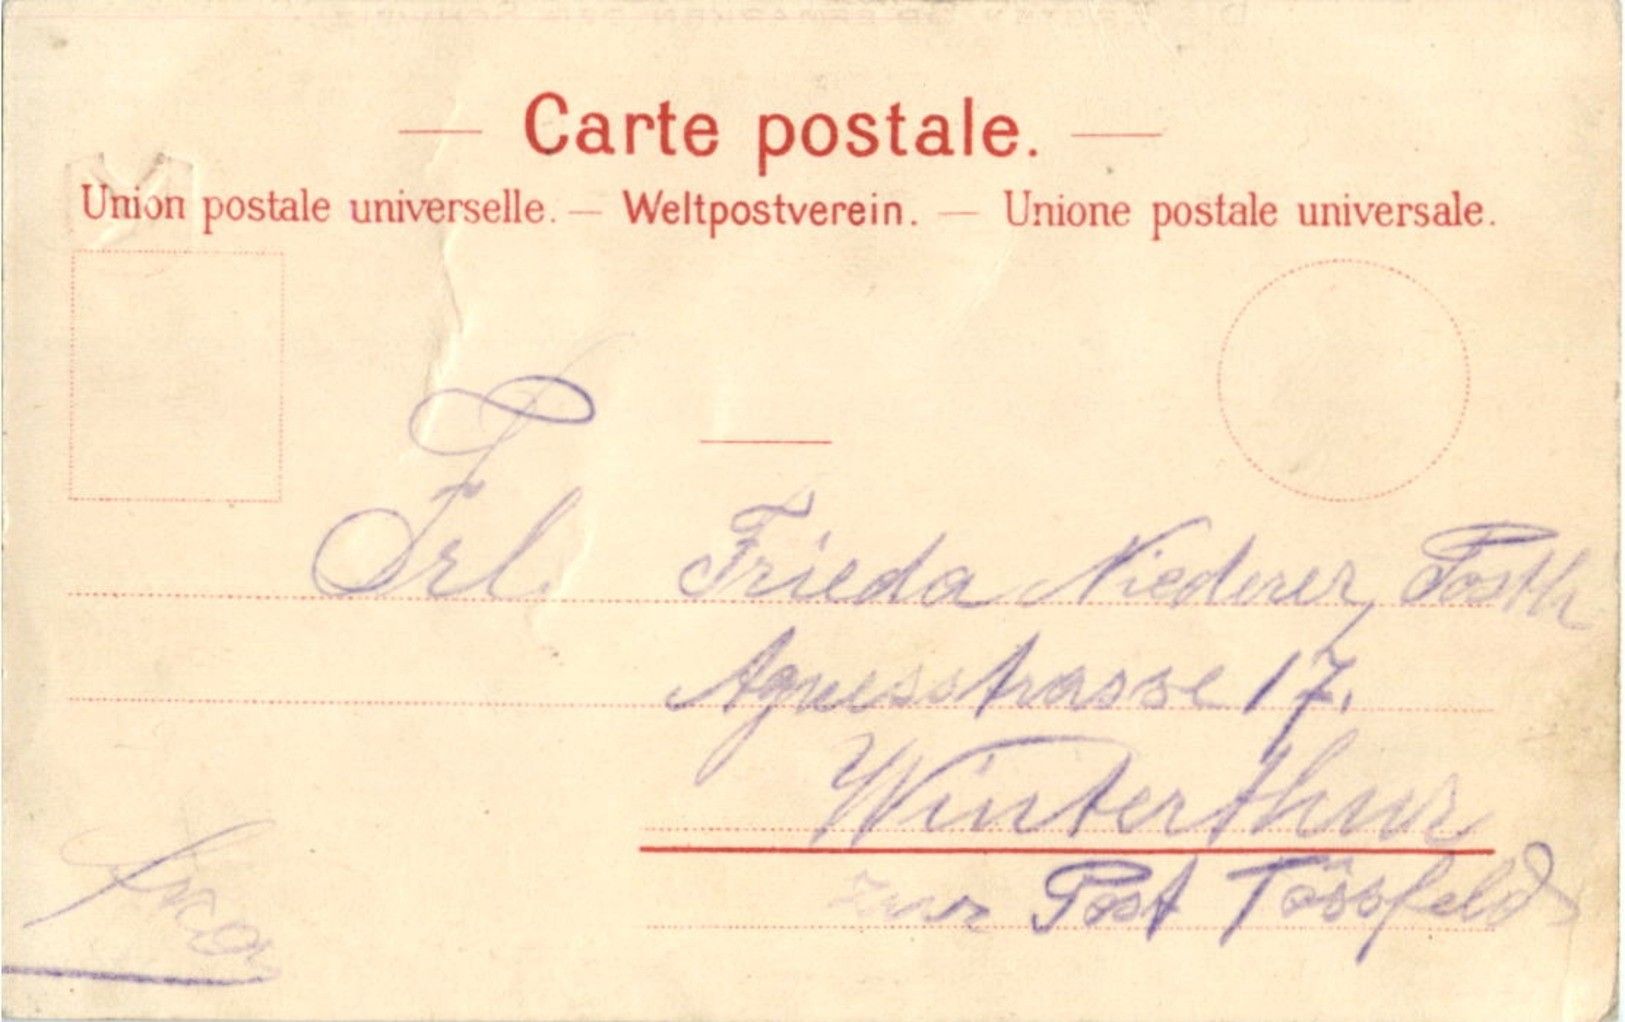 Carte postale.
Union postale universelle. — Weltpostverein. — Unione postale universale.
Frl. Frieda Niederer, Posth
Agnesstrasse 17.
Winterthur
zur Post Tössfeld